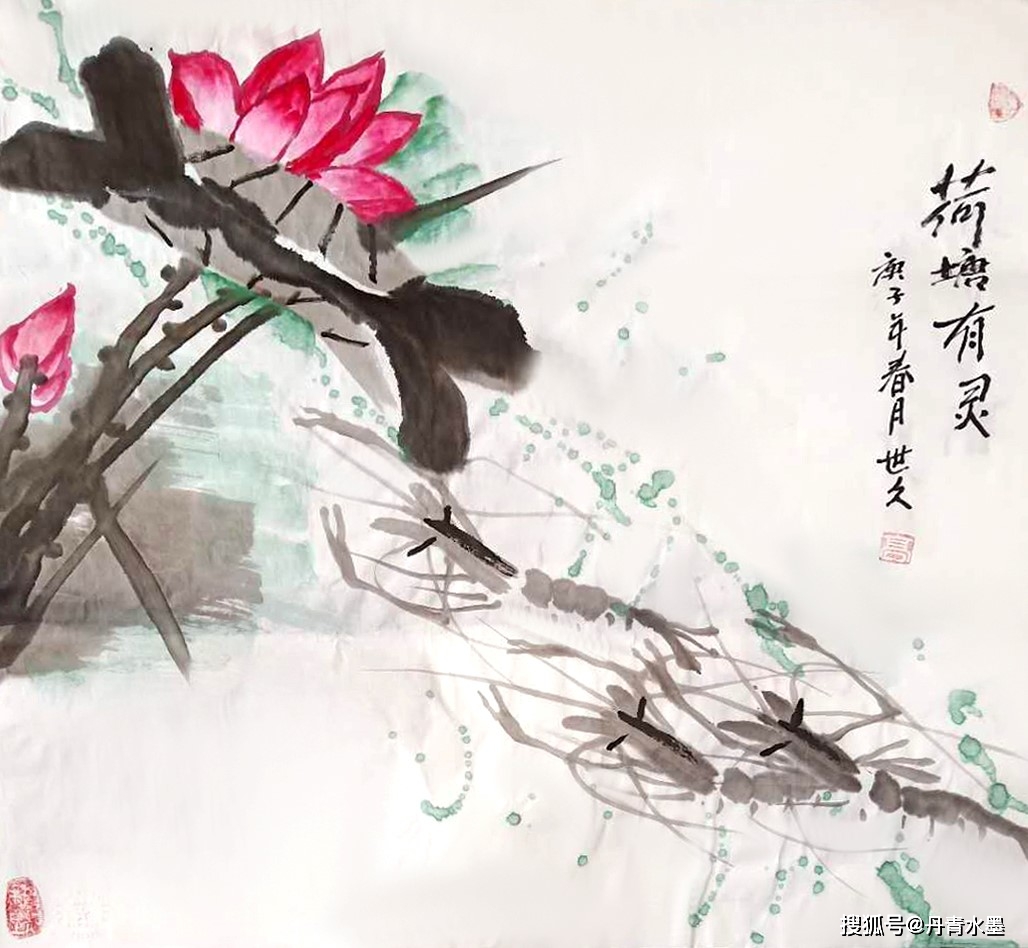 荷塘有灵
庚子年春月 世久
高
搜狐号@丹青水墨